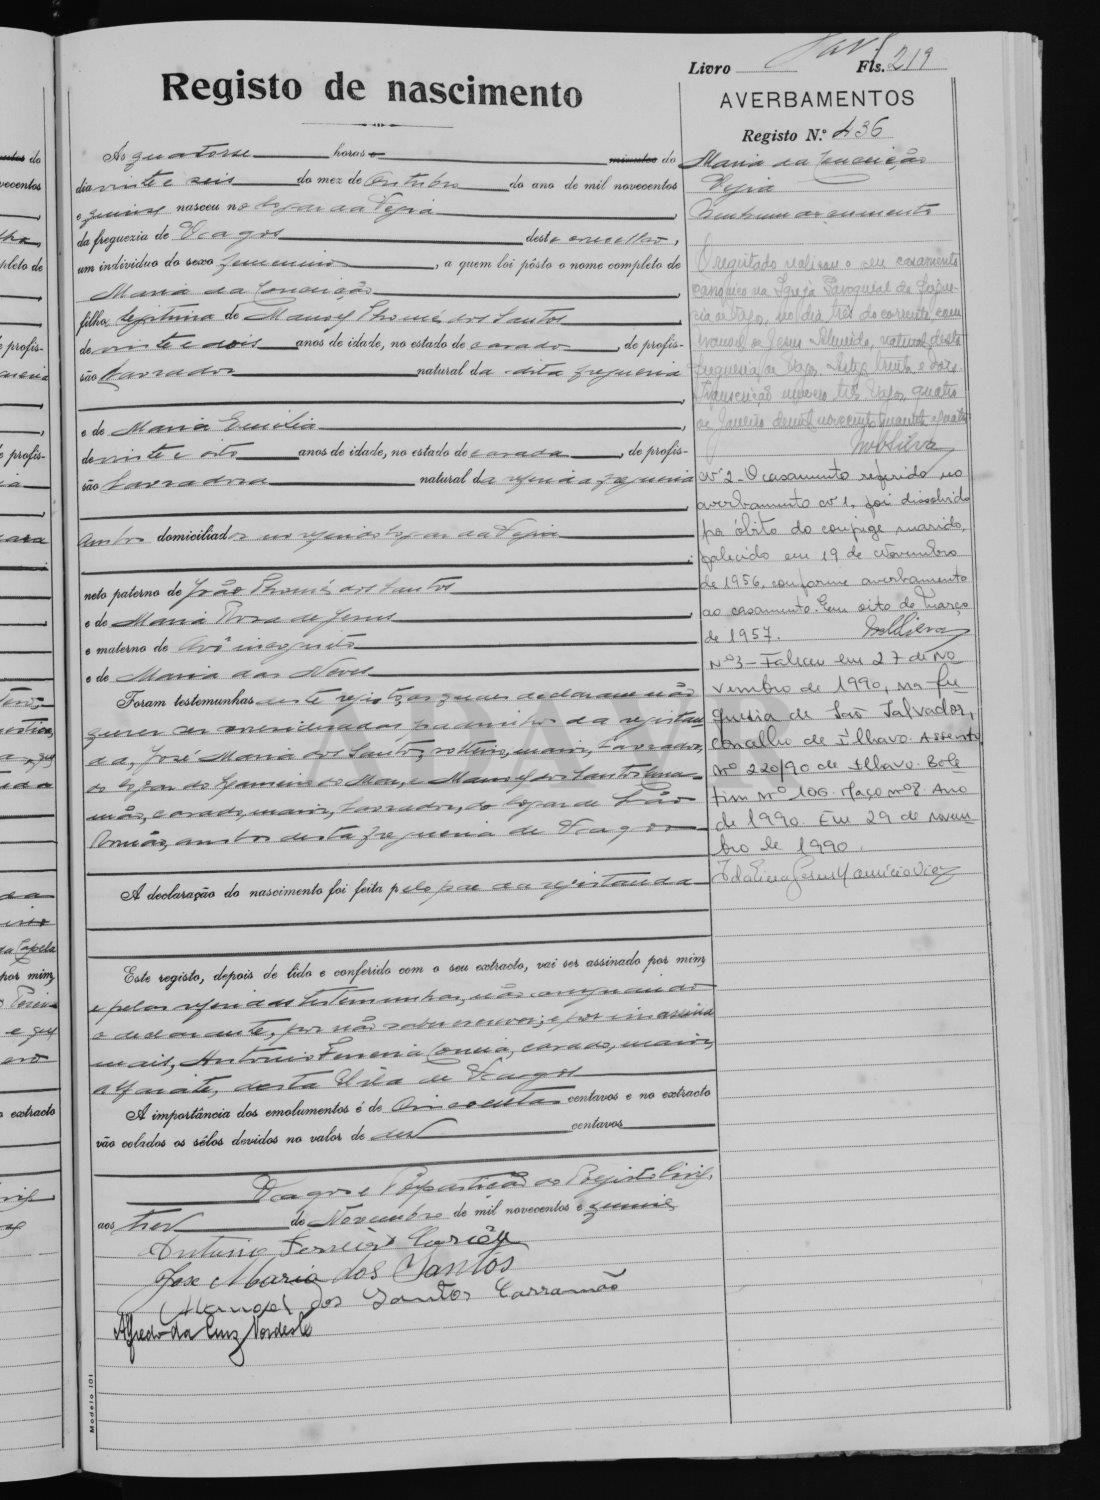 Livro Fls. 219
Registo de nascimento
AVERBAMENTOS
Registo N.º 436
Ás quatorze horas e minutos do
dia vinte e seis do mez de Outubro do ano de mil novecentos
e quinze nasceu no logar da
da freguezia de Vagos deste concelho,
um individuo do sexo femenino, a quem foi pôsto o nome completo de
Maria da Conceição
filha legitima de Manoel Thomé dos Santos
de vinte e dois anos de idade, no estado de casado, de profis-
são Lavrador natural da dita freguezia
e de Maria Emilia
de vinte e oito anos de idade, no estado de casada, de profis-
são Lavradora natural da referida freguezia
ambos domiciliados no referido logar da
neto paterno de João Thomé dos Santos
e de Maria Rosa de Jesus
e materno de Avô incognito
e de Maria das Neves
Foram testemunhas deste registo, as quaes declararam não
querer ser considerados padrinhos da registan-
da, José Maria dos Santos, solteiro, maior, Lavrador,
do logar do e Manoel dos Santos Carra-
mão, casado, maior, Lavrador, do logar de São
Romão, ambos desta freguezia de Vagos
A declaração do nascimento foi feita pelo pae da registanda
Este registo, depois de lido e conferido com o seu extracto, vai ser assinado por mim,
e pelas referidas testemunhas, não assignando
o declarante, por não saber escrever; e por mim assina
mais, Antonio Ferreira Correia, casado, maior,
alfaiate, desta Vila de Vagos
A importância dos emolumentos é de cincoenta centavos e no extracto
vão colados os sêlos devidos no valor de dez centavos
Vagos e Repartição do Registo Civil,
aos trez de Novembro de mil novecentos e quinze
Antonio Ferreira
José Maria dos Santos
Manoel dos Santos Carramão
Alfredo da Cruz Nordeste
Modelo 101
Maria da Conceição
Nenhum documento
O registado realisou o seu casamento
canonico na Igreja Paroquial da fregue-
zia de Vagos, no dia três do corrente com
Manuel de Jesus natural desta
freguesia de Vagos.
Transcrição numero três. Vagos, quatro
de Janeiro de mil novecentos quarenta e
Nº 2 - O casamento referido no
averbamento nº 1, foi dissolvido
por óbito do conjuge marido,
falecido em 19 de Novembro
de 1956, conforme averbamento
ao casamento. Em oito de Março
de 1957.
Nº 3 - Faleceu em 27 de No-
vembro de 1990, na fre-
guesia de São Salvador,
concelho de Ílhavo. Assento
nº 220/90 de Ílhavo. Bole-
tim nº 106. Maço nº 8. Ano
de 1990. Em 29 de novem-
bro de 1990.